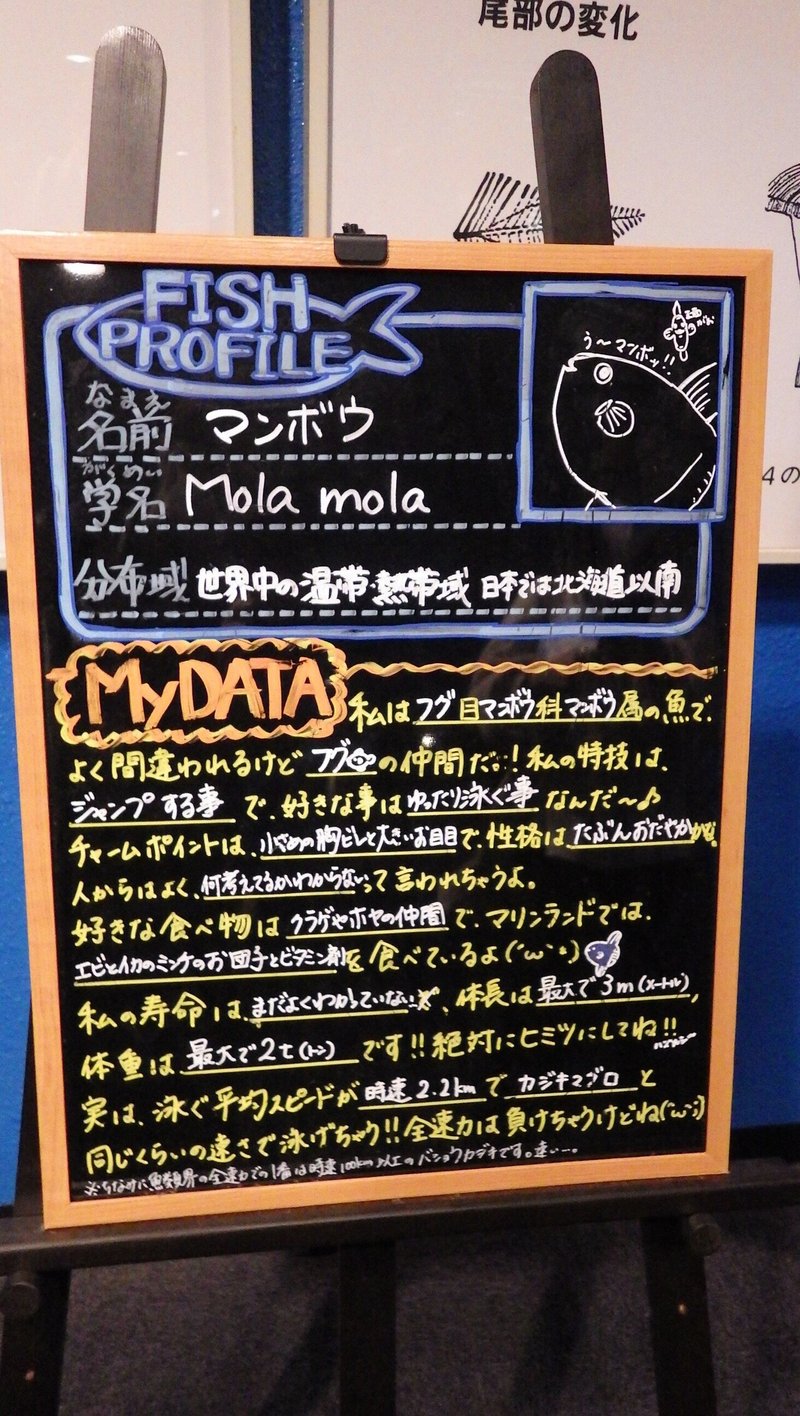 尾部の変化
FISH
PROFILE
なまえ
名前 マンボウ
がくめい
学名 Mola mola
分布域 世界中の温帯・熱帯域 日本では北海道以南
う〜マンボッ!!
4の
MyDATA
私は フグ目マンボウ科マンボウ属の魚で、
よく間違われるけど フグの仲間だよ!私の特技は、
ジャンプする事 で、好きな事は ゆったり泳ぐ事 なんだ〜♪
チャームポイントは、小さめの胸ビレと大きいお目目で、性格は たぶんおだやかかな。
人からはよく、何考えてるかわからないって言われちゃうよ。
好きな食べ物は クラゲやホヤの仲間 で、マリンランドでは、
エビとイカのミンチのお団子とビタミン剤を食べているよ(´ω`*)
私の寿命は、まだよくわかっていない、体長は 最大で3m(メートル)、
体重は 最大で2t(トン) です!!絶対にヒミツにしてね!!
実は、泳ぐ平均スピードが 時速2.2km で カジキマグロ と
同じくらいの速さで泳げちゃう!!全速力は負けちゃうけどね(´ω`;)
※ちなみに魚類界の全速力での1番は時速100km以上のバショウカジキです。速い〜。